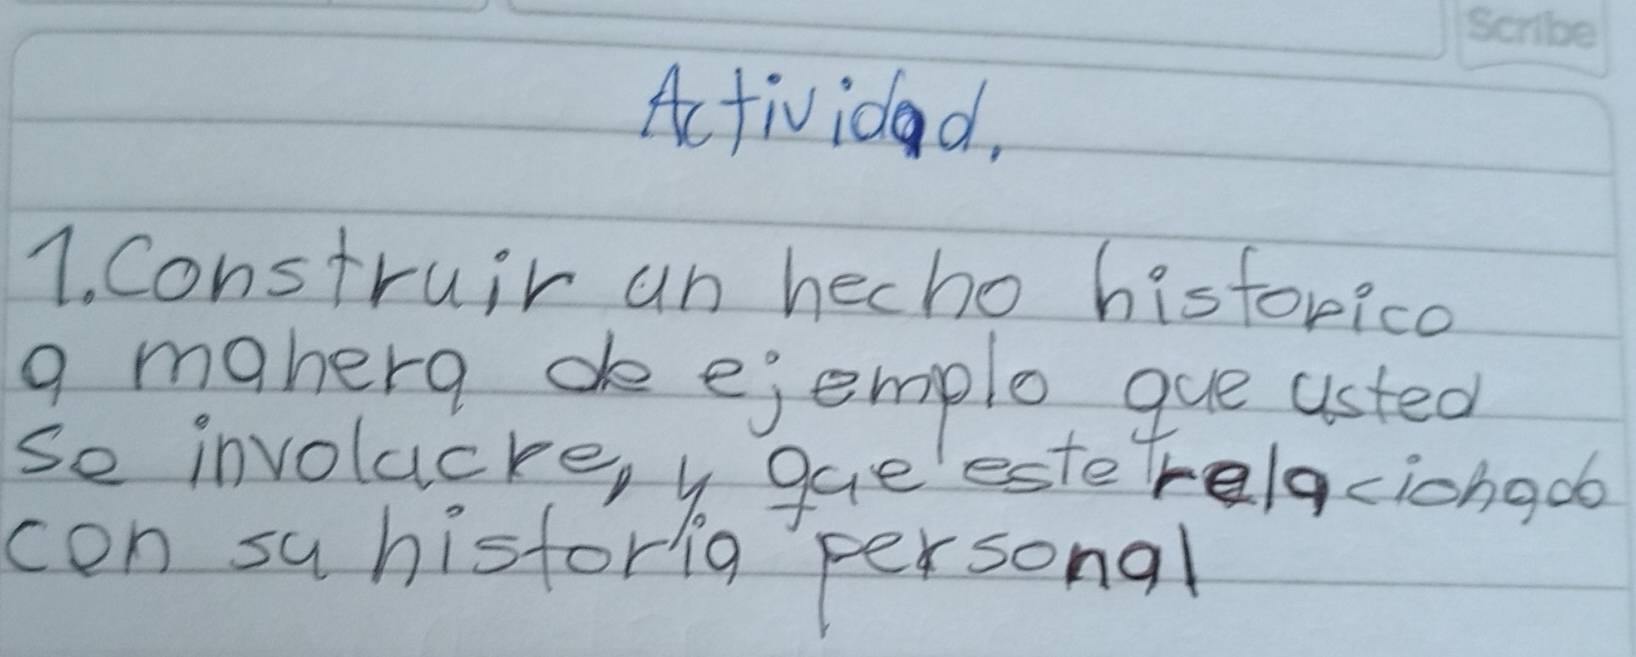 Scribe
Actividad.
1. Construir un hecho historico
a manera de ejemplo que usted
se involucre, y que este relacionado
con su historia personal